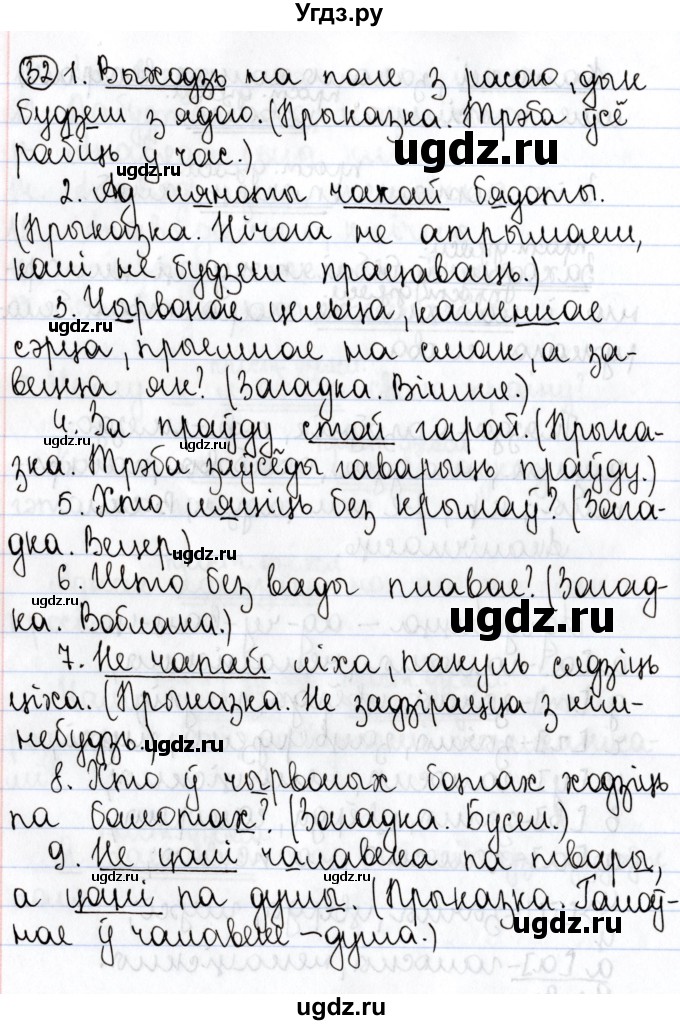 Угдз.ру
32 1. Выходзь на поле з расою, дык
будзеш з адою. (Прыказка. Трэба ўсё
рабіць у час.)
ugdz.ru
2. Ад ляноты чакай бядоты.
(Прыказка. Нічога не атрымаеш,
ugdz.ru
калі не будзеш працаваць.)
3. Чырвонае цельца, каменнае
ugdz.ru
сэрца, прыемнае на смак, а за-
вецца як? (Загадка. Вішня.)
4. За праўду стой гарой. (Прыка-
ugdz.ru
ugdz.ru
зка. Трэба заўсёды гаварыць праўду.)
5. Хто ляціць без крылаў? (Зага-
дка. Вецер.)
ugdz.ru
6. Што без вады плавае? (Загад-
ugdz.ru
ugdz.ru
ка. Воблака.)
7. Не чапай ліха, пакуль сядзіць
ugdz.ru
ціха. (Прыказка. Не задзірацца з кім-
небудзь.)
ugdz.ru
8. Хто ў чырвоных ботах ходзіць
па балотах? (Загадка. Бусел.)
ugdz.ru
9. Не цані чалавека па твары,
а цані па душы. (Прыказка. Галоў-
ugdz.ru
нае ў чалавеке – душа.)
ugdz.ru